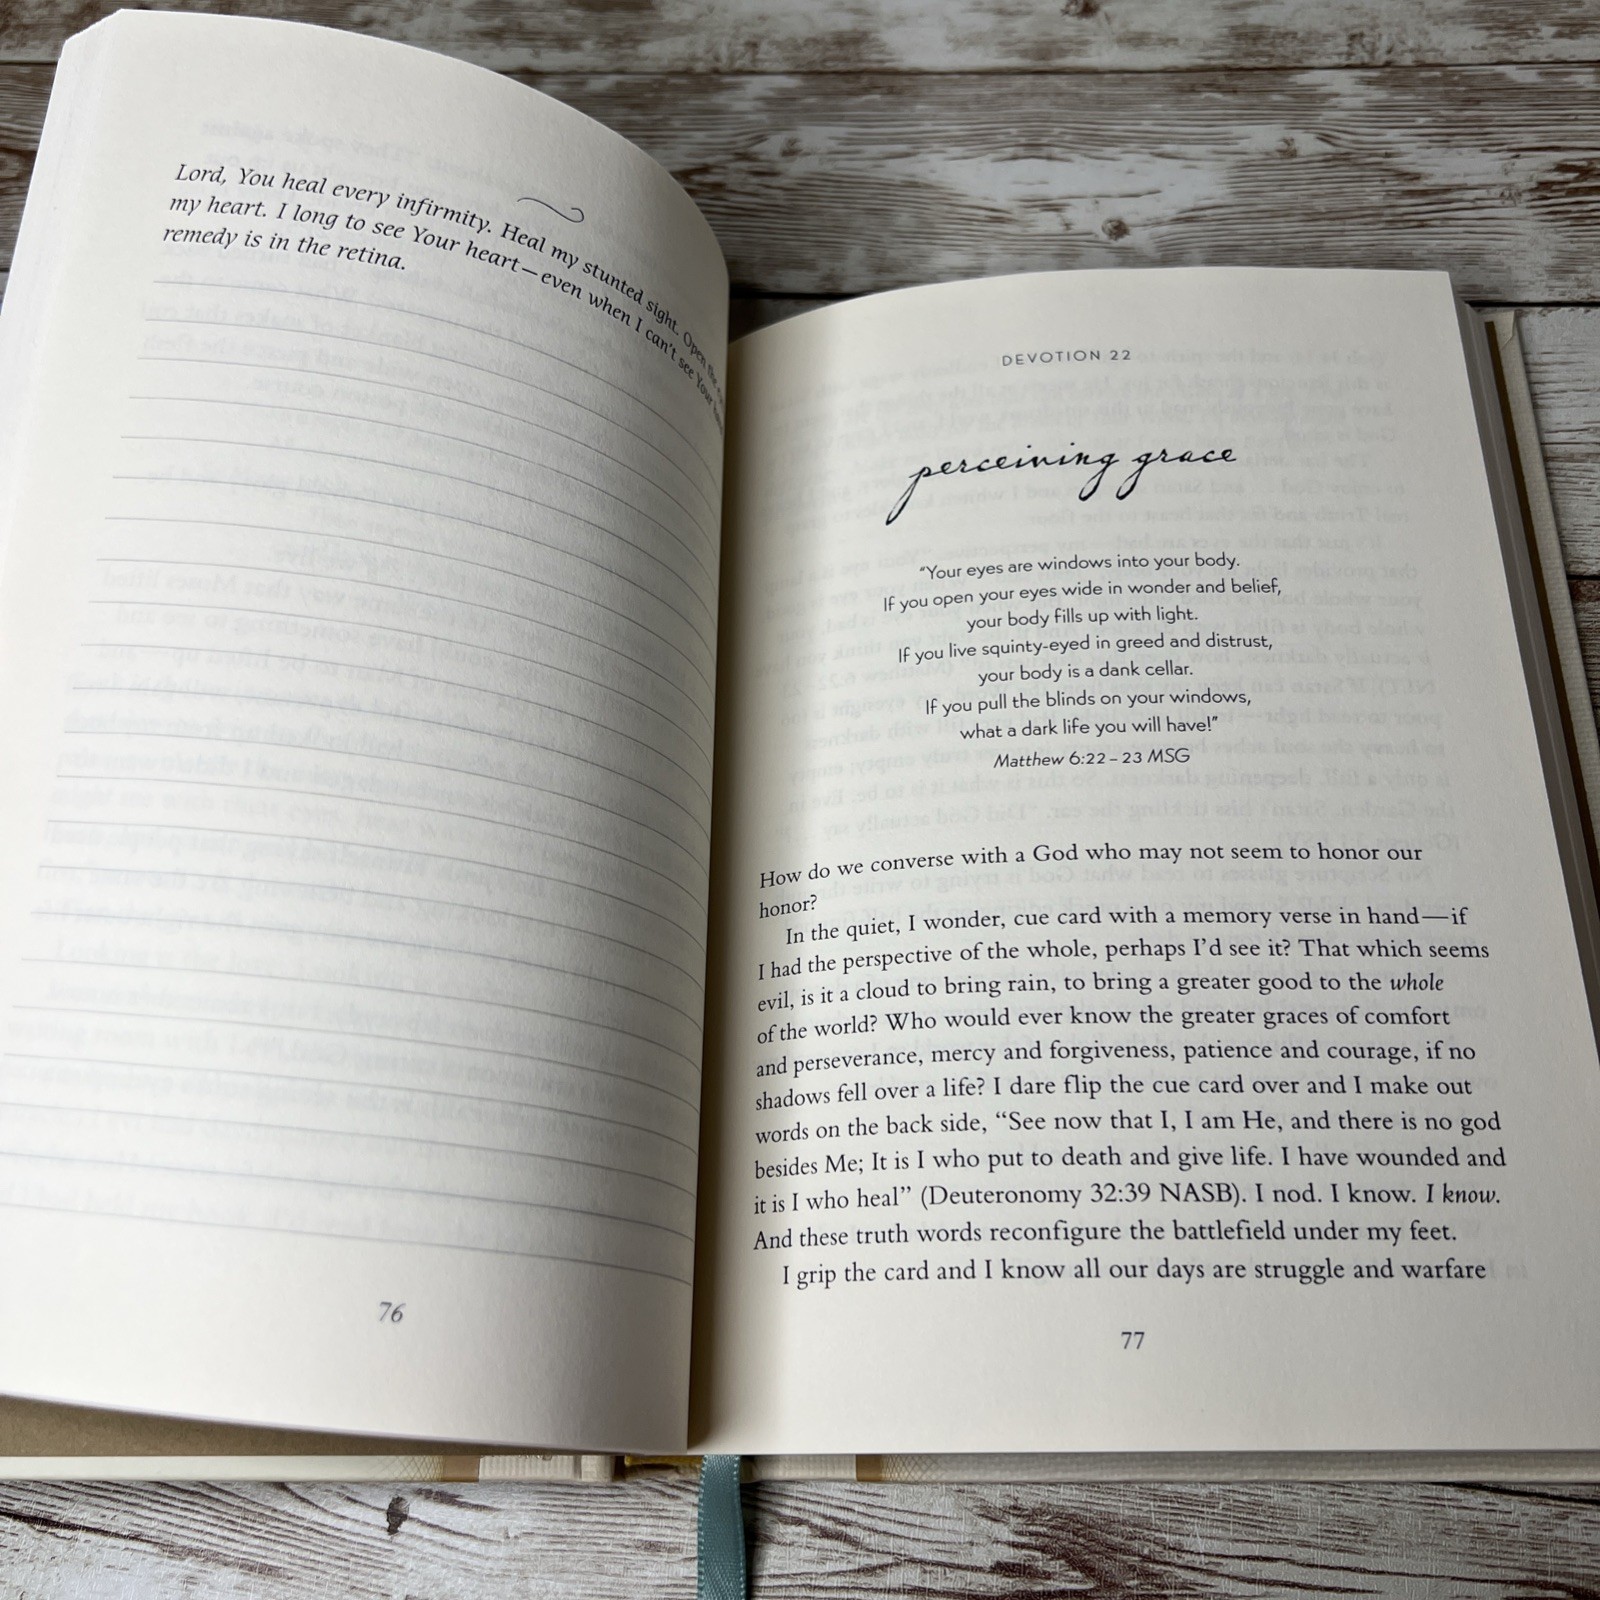 Lord, You heal every infirmity. Heal my stunted sight. Open the
my heart. I long to see Your heart—even when I can't see Your
remedy is in the retina.
76
DEVOTION 22
perceiving grace
“Your eyes are windows into your body.
If you open your eyes wide in wonder and belief,
your body fills up with light.
If you live squinty-eyed in greed and distrust,
your body is a dank cellar.
If you pull the blinds on your windows,
what a dark life you will have!”
Matthew 6:22–23 MSG
How do we converse with a God who may not seem to honor our
honor?
In the quiet, I wonder, cue card with a memory verse in hand—if
I had the perspective of the whole, perhaps I'd see it? That which seems
evil, is it a cloud to bring rain, to bring a greater good to the whole
of the world? Who would ever know the greater graces of comfort
and perseverance, mercy and forgiveness, patience and courage, if no
shadows fell over a life? I dare flip the cue card over and I make out
words on the back side, “See now that I, I am He, and there is no god
besides Me; It is I who put to death and give life. I have wounded and
it is I who heal” (Deuteronomy 32:39 NASB). I nod. I know. I know.
And these truth words reconfigure the battlefield under my feet.
I grip the card and I know all our days are struggle and warfare
77